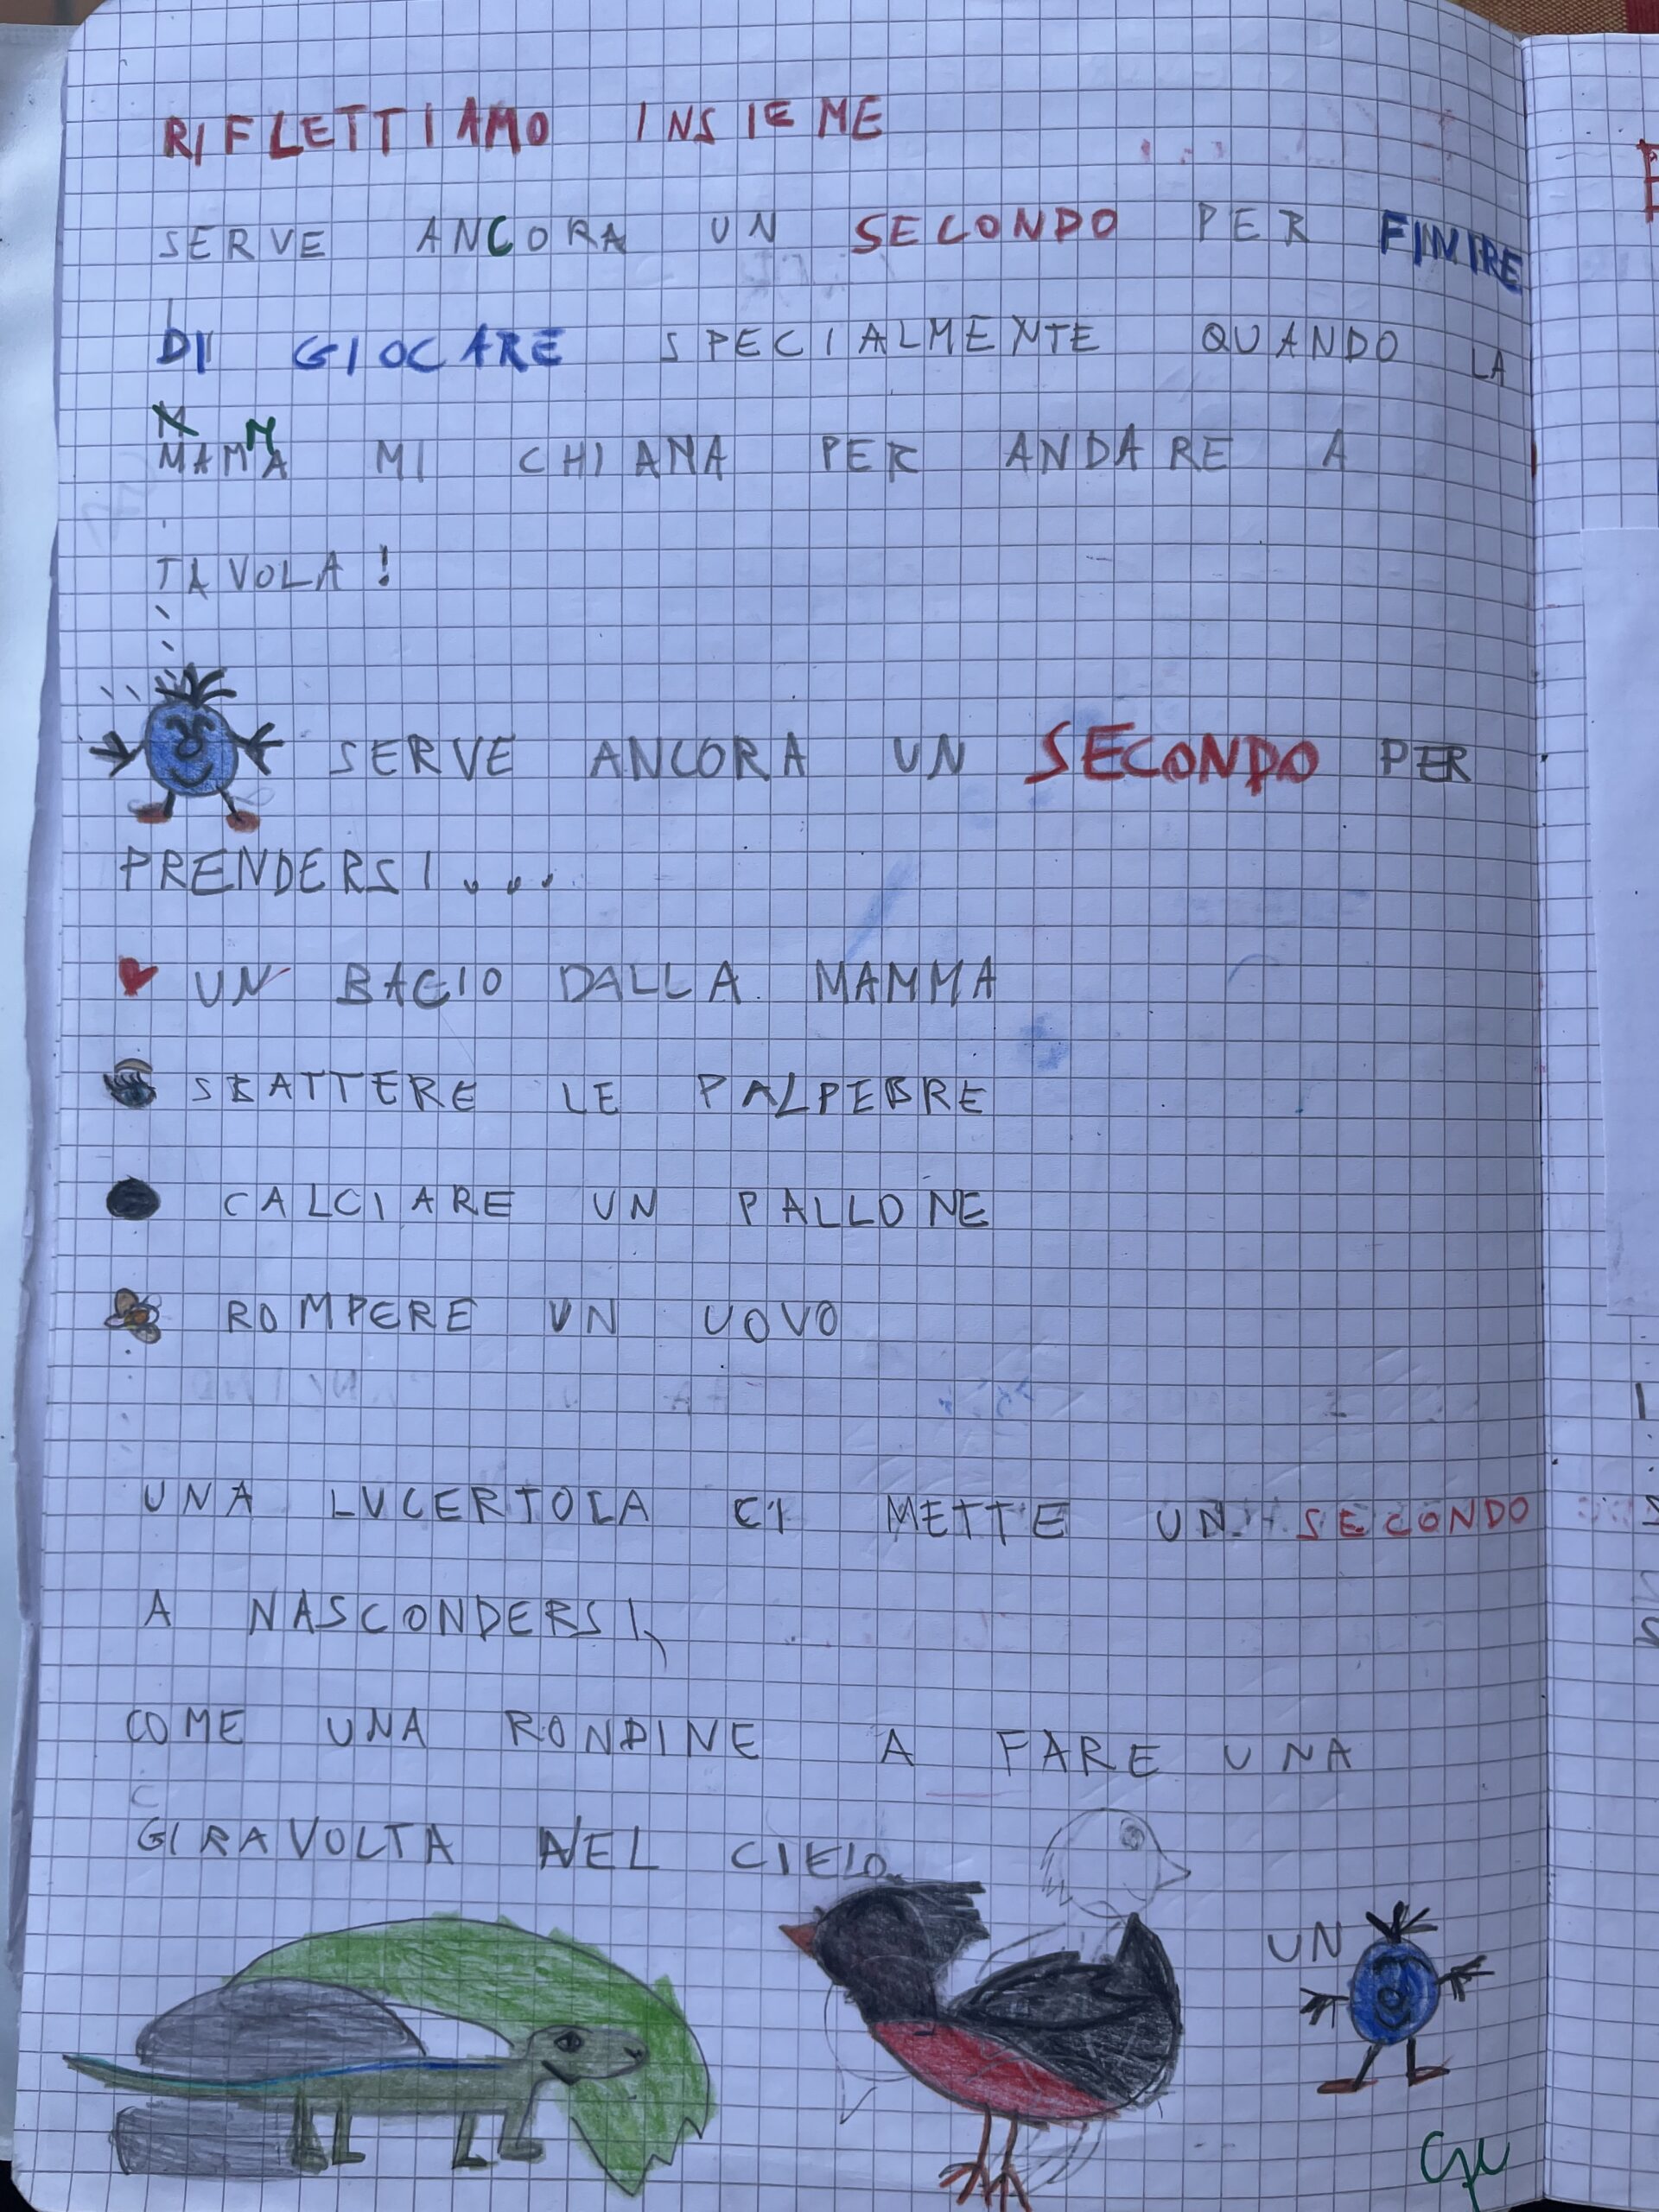 RIFLETTIAMO INSIEME
SERVE ANCORA UN SECONDO PER FINIRE
DI GIOCARE SPECIALMENTE QUANDO LA
MAMMA MI CHIAMA PER ANDARE A
TAVOLA!
SERVE ANCORA UN SECONDO PER
PRENDERSI....
UN BACIO DALLA MAMMA
SBATTERE LE PALPEBRE
CALCIARE UN PALLONE
ROMPERE UN UOVO
UNA LUCERTOLA CI METTE UN SECONDO
A NASCONDERSI,
COME UNA RONDINE A FARE UNA
GIRAVOLTA NEL CIELO.
UN